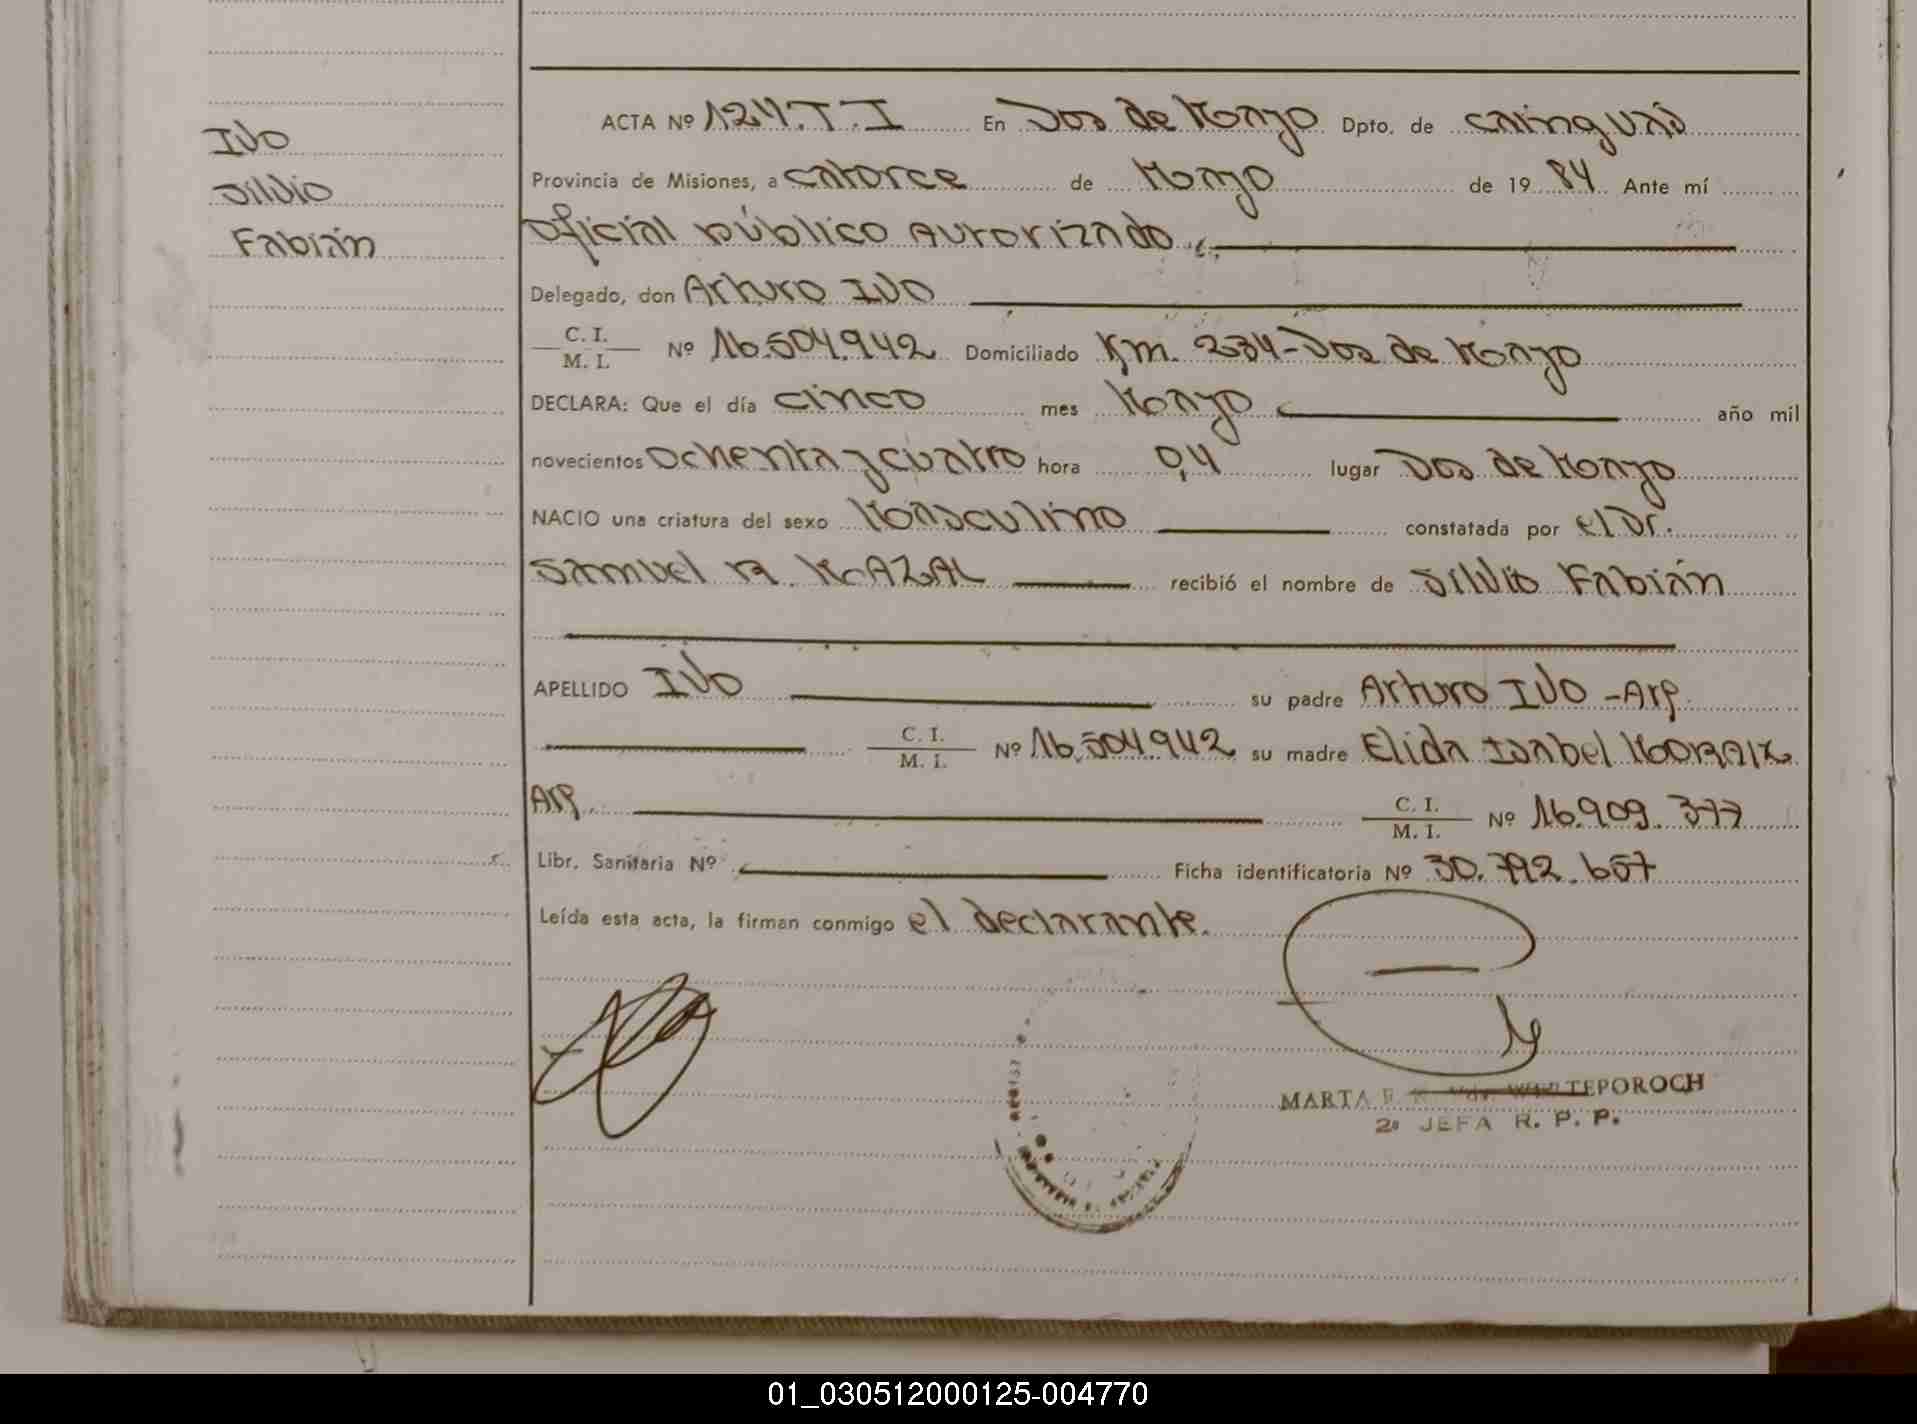 Ivo
Silvio
Fabián
ACTA Nº 124.T.I En Dos de Mayo Dpto. de Cainguás
Provincia de Misiones, a catorce de Mayo de 19 84 Ante mí
Oficial público autorizado
Delegado, don Arturo Ivo
C. I.
M. I. Nº 16.504.942 Domiciliado Km. 234-Dos de Mayo
DECLARA: Que el día cinco mes Mayo año mil
novecientos ochenta y cuatro hora 0,4 lugar Dos de Mayo
NACIO una criatura del sexo Masculino constatada por el Dr.
Samuel R. MAZAL recibió el nombre de Silvio Fabián
APELLIDO Ivo su padre Arturo Ivo -Arg.
C. I.
M. I. Nº 16.504.942 su madre Elida Isabel
Arg. C. I.
M. I. Nº 16.909.377
Libr. Sanitaria Nº Ficha identificatoria Nº 30.792.657
Leída esta acta, la firman conmigo el declarante.
MARTA TEPOROCH
2º JEFA R. P. P.
01_030512000125-004770